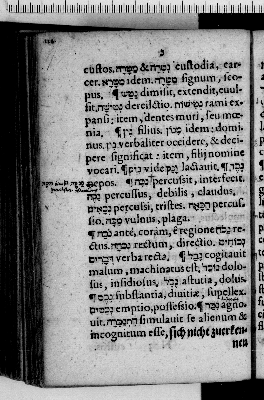 נ
custos. מַטָּרָה & מַטָּרָא custodia, car-
cer. מַטָּרָא idem. מַטָּרָה signum, sco-
pus. ¶ נָטַשׁ dimisit, extendit, euul-
sit. נְטִישָׁה derelictio. נְטִישׁוֹת rami ex
pansi: item, dentes muri, seu mœ-
nia. ¶ נִין filius. מָנוֹן idem: domi-
nus. verbaliter occidere, & deci-
pere significat: item, filij nomine
vocari. ¶ vide lactauit. ¶
nepos. ¶ נָכָה percussit, interfecit.
נָכֶה percussus, debilis, claudus.
נְכָאִים percussi, tristes. percus-
sio. מַכָּה vulnus, plaga.
¶ נֹכַח antè, coràm, è regione re-
ctus. נְכֹחָה rectum, directio. נְכֹחִים
verba recta. ¶ נָכַל cogitauit
malum, machinatus est. נוֹכֵל dolo-
sus, insidiosus. נֵכֶל astutia, dolus.
¶ נְכָסִים substantia, diuitiæ, supellex.
emptio, possessio. ¶ נָכַר agno-
uit. הִתְנַכֵּר simulauit se alienum &
incognitum esse, sich nicht zuerken-
nen